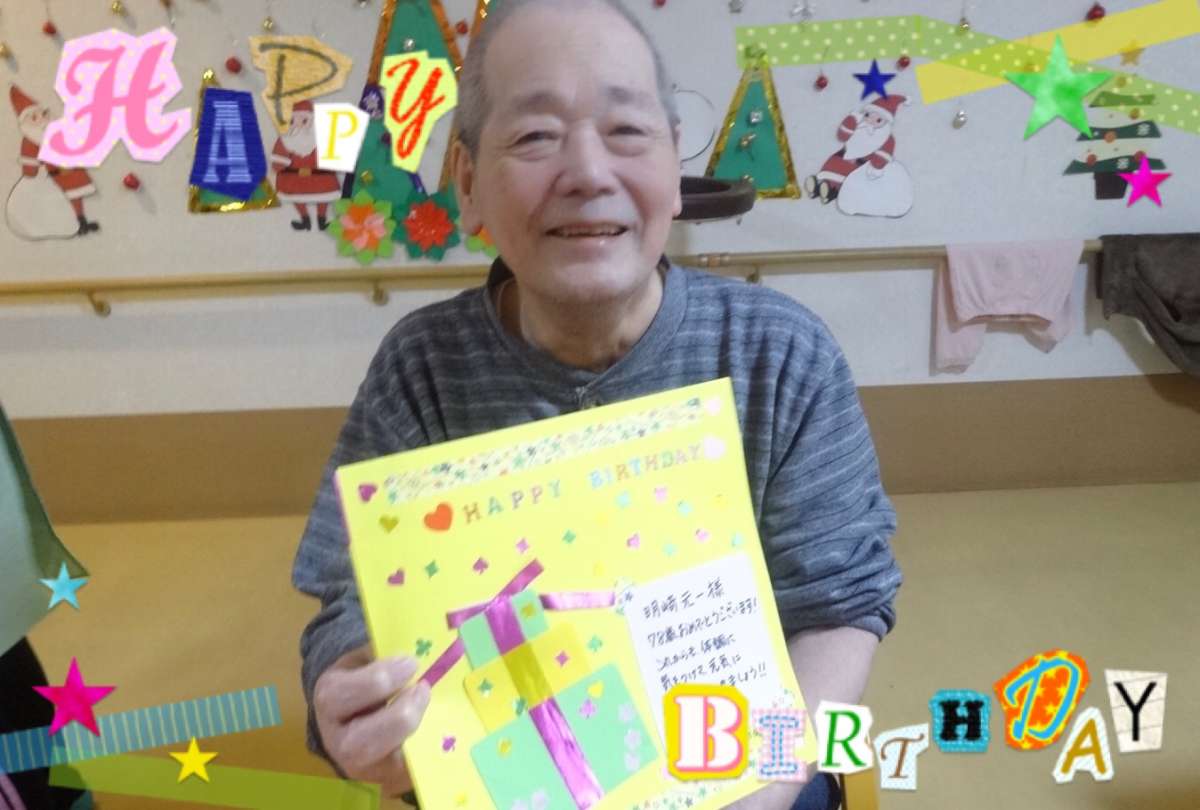 HAPPY
HAPPY BIRTHDAY
元一様
78歳おめでとうございます!
これからも、体調に
気をつけて元気に
ましょう!!
BIRTHDAY